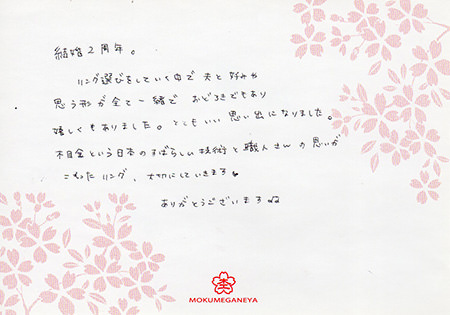 結婚2周年。
リング選びをしていく中で夫と好みや
思う形が全て一緒で おどろきでもあり
嬉しくもありました。とてもいい思い出になりました。
木目金という日本のすばらしい技術と職人さんの思いが
こもったリング、大切にしていきます
ありがとうございます
MOKUMEGANEYA